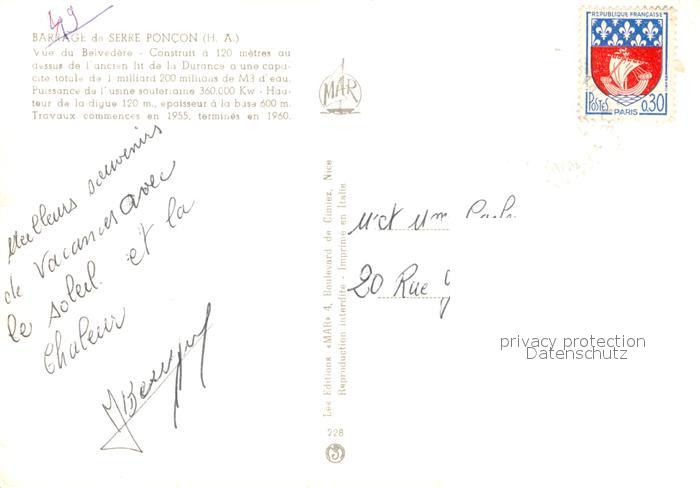 49
BARRAGE de SERRE PONÇON (H. A.)
Vue du Belvedère - Construit à 120 mètres au
dessus de l'ancien lit de la Durance a une capa-
cité totale de 1 milliard 200 millions de M3 d'eau.
Puissance de l'usine souteriaine 360.000 Kw - Hau-
teur de la digue 120 m., epaisseur à la base 600 m.
Travaux commences en 1955, terminés en 1960.
Meilleurs souvenirs
de vacances avec
le soleil et la
Chaleur
MAR
Les Editions «MAR» 4, Boulevard de Cimiez, Nice
Reproduction interdite - Imprimé en Italie
228
REPUBLIQUE FRANÇAISE
POSTES
0,30
PARIS
Mr et Mm
20 Rue
privacy protection
Datenschutz